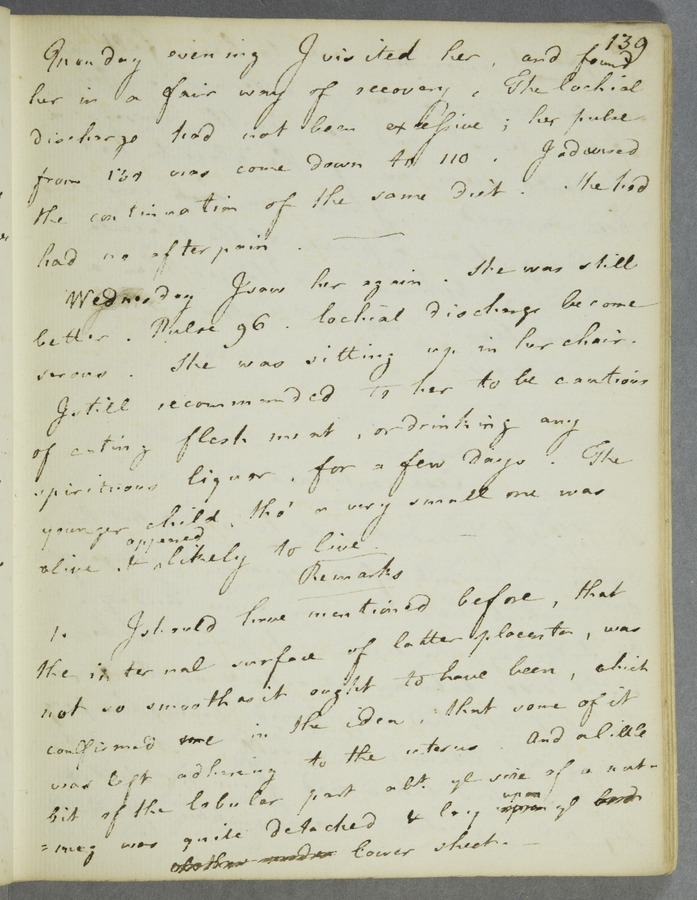 139
Munday evening I visited her, and found
her in a fair way of recovery. The lochial
discharge had not been excessive; her pulse
from 130 was come down to 110. I advised
the continuation of the same diet. She had
had no afterpain.
Wednesday I saw her again. She was still
better. Pulse 96. lochial discharge become
serous. She was sitting up in her chair.
I still recommended to her to be cautious
of eating flesh meat, or drinking any
spirituous liquor, for a few days. The
younger child, tho' a very small one was
alive & appeared likely to live.
Remarks
1. I should have mentioned before, that
the internal surface of latter placenta, was
not so smooth as it ought to have been, which
confirmed me in the idea, that some of it
was left adhering to the uterus. And a little
bit of the lobular part abt. ye size of a nut-
=meg was quite detached & lay upon ye
lower sheet.